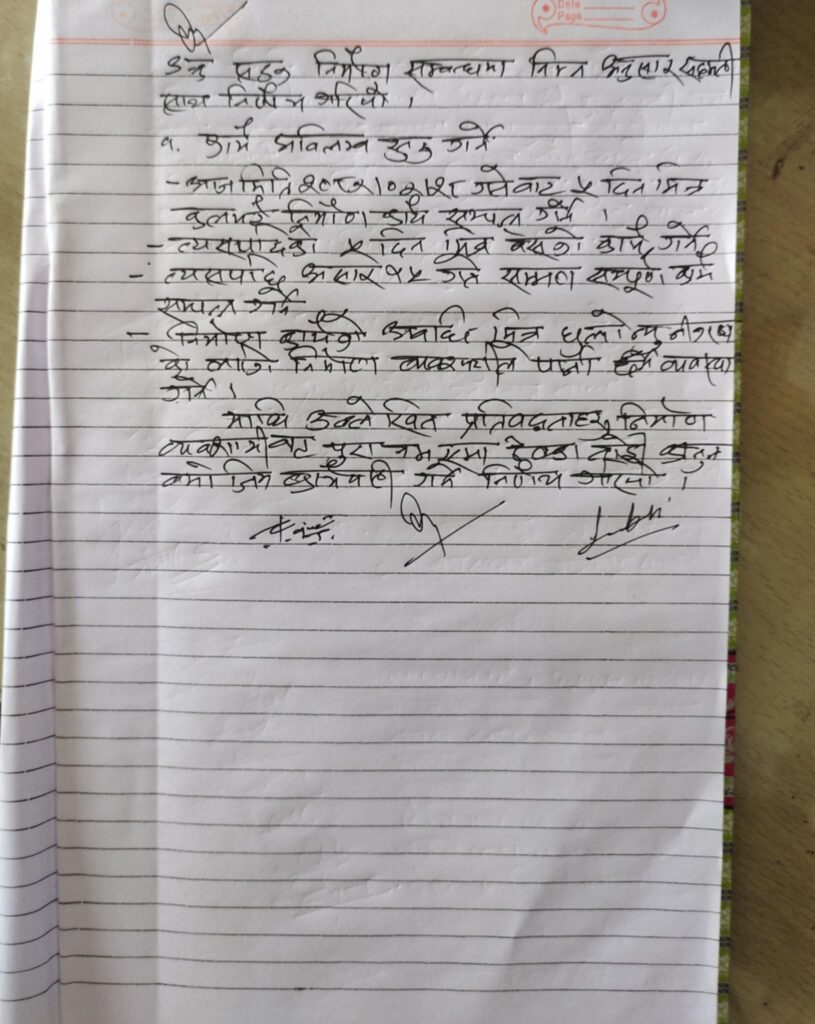 Date
Page
उक्त सडक निर्माण सम्बन्धमा निम्न अनुसार सहमती
साथ निर्णय गरियो ।
१. कार्य अविलम्ब सुरु गर्ने
- आज मिति २०८२।०२।२९ गतेबाट ५ दिन भित्र
कुलभर्ट निर्माण कार्य सम्पन्न गर्ने ।
- त्यसपछिको ५ दिन भित्र वेसको कार्य गर्ने
- त्यसपछि असार १५ गते सम्ममा सम्पूर्ण कार्य
सम्पन्न गर्ने
- निर्माण कार्यको अवधि भित्र धुलो न्युनीकरण
को लागि निर्माण व्यवसायीले पानी व्यवस्था
गर्ने ।
माथि उल्लेखित प्रतिवद्धताहरु निर्माण
व्यवसायीबाट पुरा नभएमा ठेक्का तोडी कानुन
बमोजिम कार्यवाही गर्ने निर्णय गरियो ।